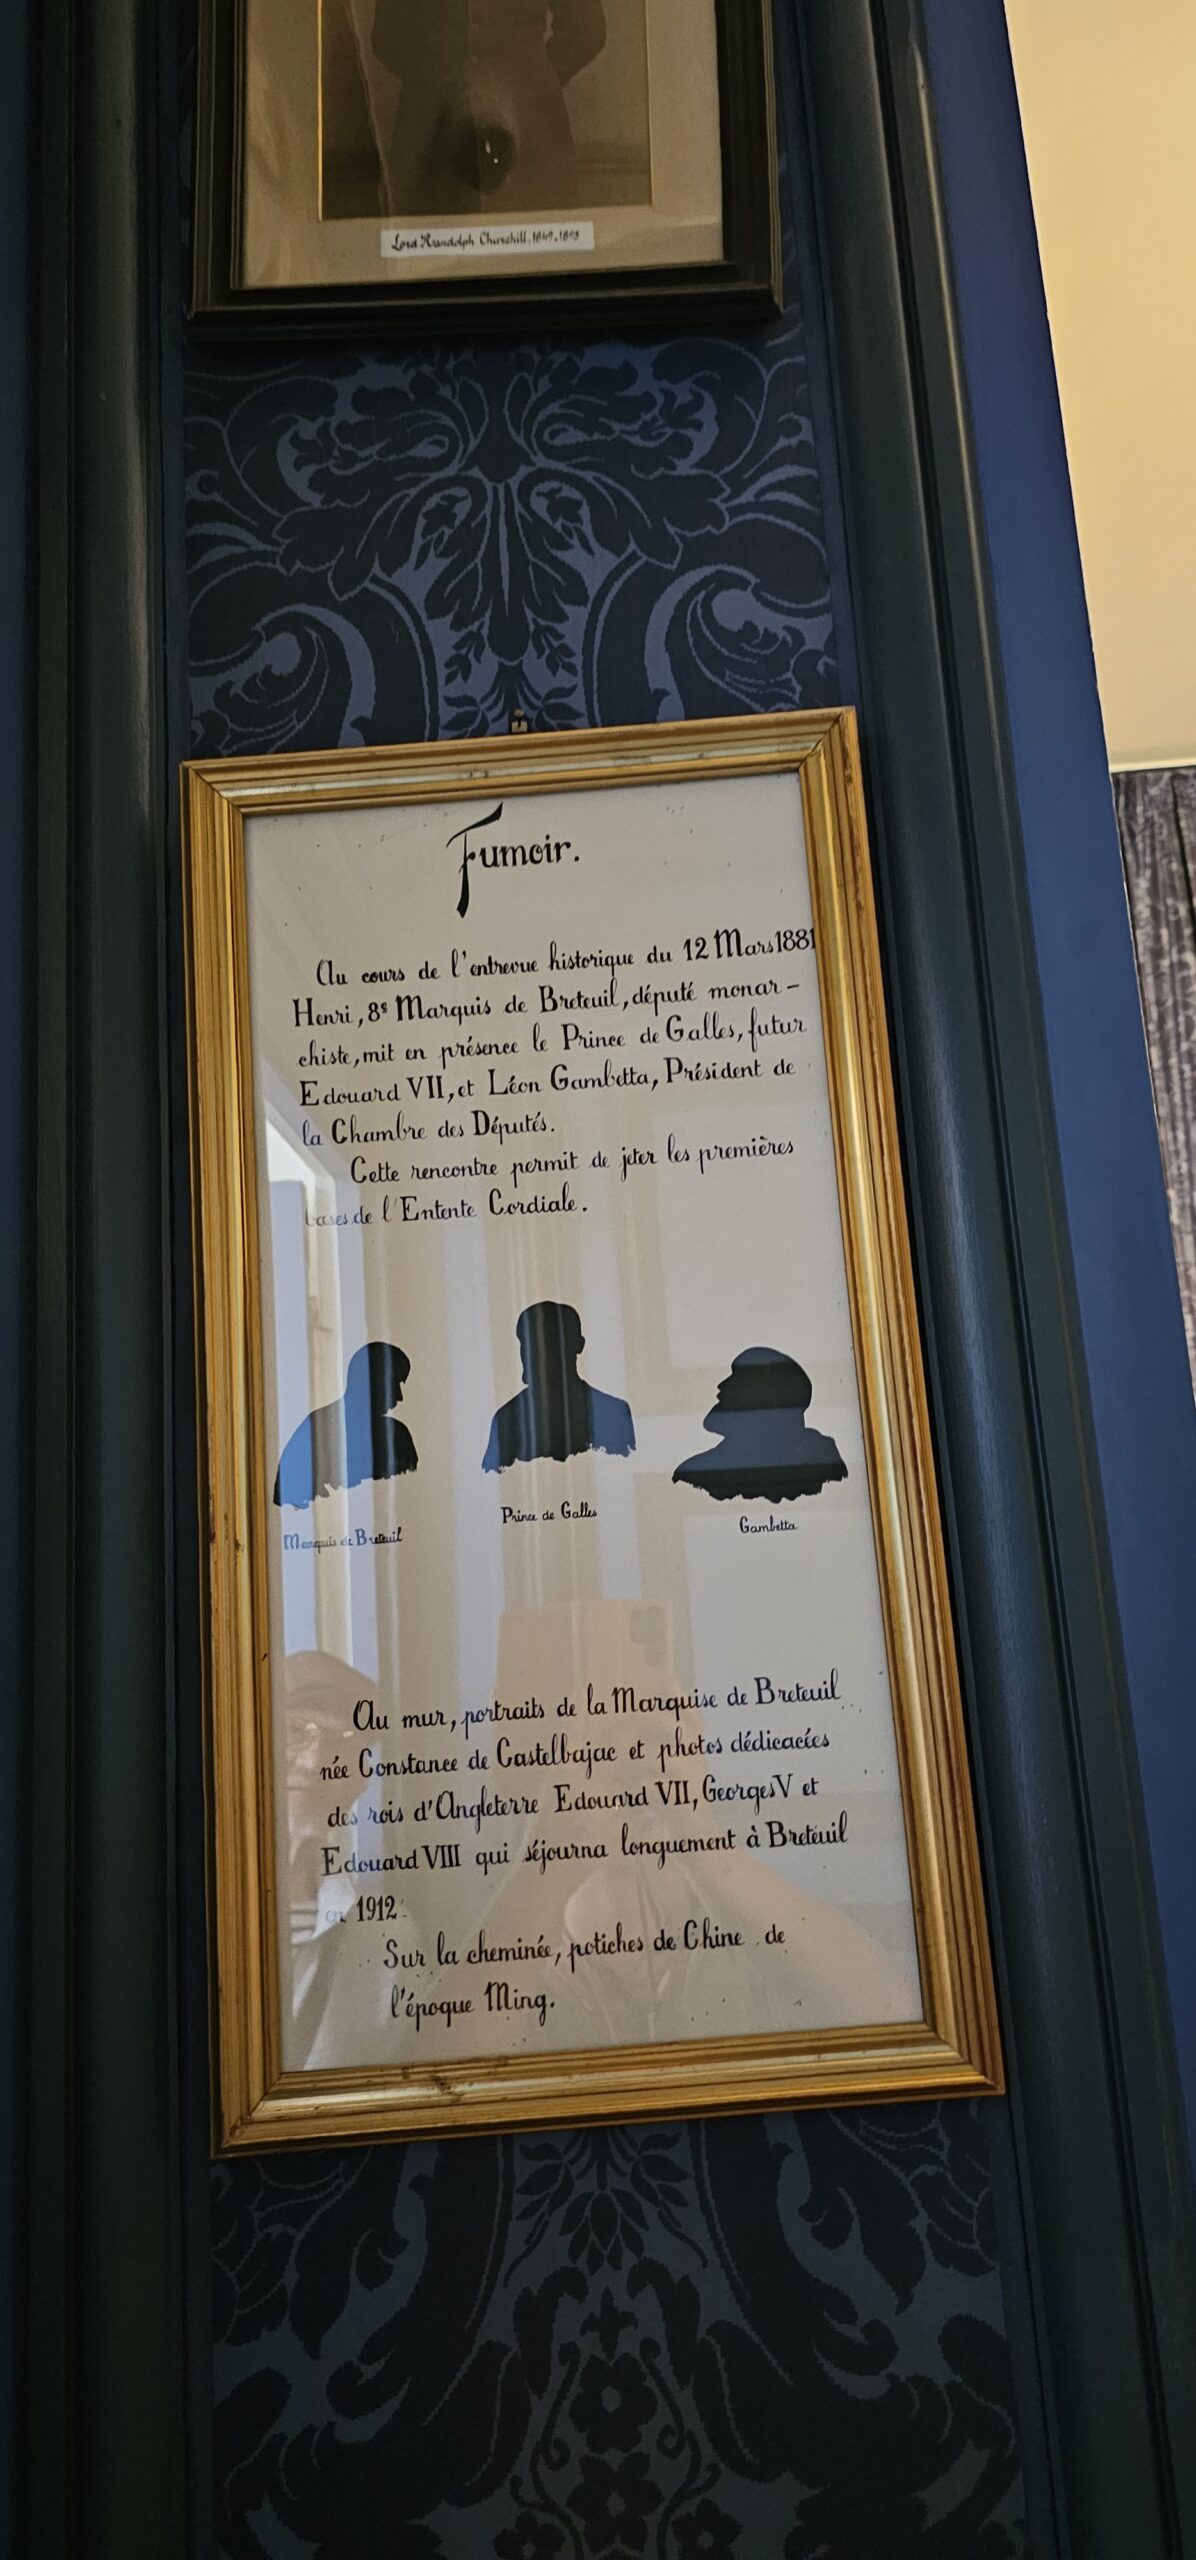 Lord Randolph Churchill. 1849-1895
Fumoir.
Au cours de l'entrevue historique du 12 Mars 1881
Henri, 8e Marquis de Breteuil, député monar-
chiste, mit en présence le Prince de Galles, futur
Edouard VII, et Léon Gambetta, Président de
la Chambre des Députés.
Cette rencontre permit de jeter les premières
bases de l'Entente Cordiale.
Marquis de Breteuil
Prince de Galles
Gambetta
Au mur, portraits de la Marquise de Breteuil
née Constance de Castelbajac et photos dédicacées
des rois d'Angleterre Edouard VII, Georges V et
Edouard VIII qui séjourna longuement à Breteuil
en 1912.
Sur la cheminée, potiches de Chine de
l'époque Ming.